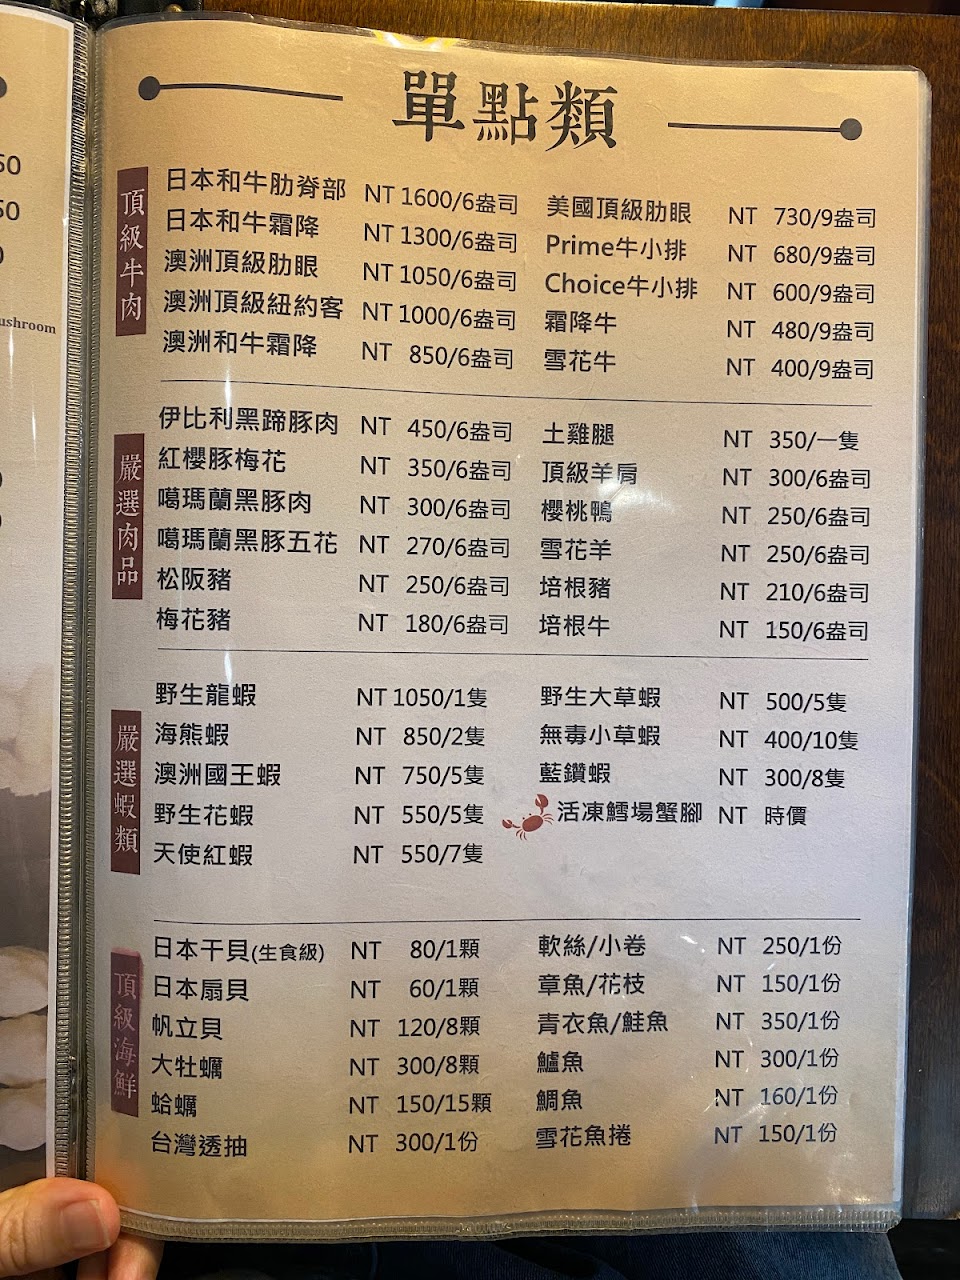 單點類
頂級牛肉
日本和牛肋脊部 NT 1600/6盎司
日本和牛霜降 NT 1300/6盎司
澳洲頂級肋眼 NT 1050/6盎司
澳洲頂級紐約客 NT 1000/6盎司
澳洲和牛霜降 NT 850/6盎司
美國頂級肋眼 NT 730/9盎司
Prime牛小排 NT 680/9盎司
Choice牛小排 NT 600/9盎司
霜降牛 NT 480/9盎司
雪花牛 NT 400/9盎司
嚴選肉品
伊比利黑蹄豚肉 NT 450/6盎司
紅櫻豚梅花 NT 350/6盎司
噶瑪蘭黑豚肉 NT 300/6盎司
噶瑪蘭黑豚五花 NT 270/6盎司
松阪豬 NT 250/6盎司
梅花豬 NT 180/6盎司
土雞腿 NT 350/一隻
頂級羊肩 NT 300/6盎司
櫻桃鴨 NT 250/6盎司
雪花羊 NT 250/6盎司
培根豬 NT 210/6盎司
培根牛 NT 150/6盎司
嚴選蝦類
野生龍蝦 NT 1050/1隻
海熊蝦 NT 850/2隻
澳洲國王蝦 NT 750/5隻
野生花蝦 NT 550/5隻
天使紅蝦 NT 550/7隻
野生大草蝦 NT 500/5隻
無毒小草蝦 NT 400/10隻
藍鑽蝦 NT 300/8隻
活凍鱈場蟹腳 NT 時價
頂級海鮮
日本干貝(生食級) NT 80/1顆
日本扇貝 NT 60/1顆
帆立貝 NT 120/8顆
大牡蠣 NT 300/8顆
蛤蠣 NT 150/15顆
台灣透抽 NT 300/1份
軟絲/小卷 NT 250/1份
章魚/花枝 NT 150/1份
青衣魚/鮭魚 NT 350/1份
鱸魚 NT 300/1份
鯛魚 NT 160/1份
雪花魚捲 NT 150/1份